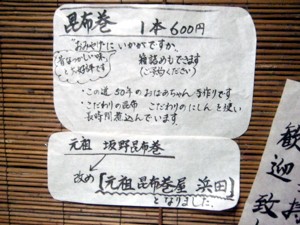 昆布巻 1本600円
おみやげにいかがですか、
昔なつかしい味
と大好評です
箱詰めもできます
(ご予約ください)
・この道50年のおばあちゃん手作りです
・こだわりの昆布 こだわりのにしんと使い
長時間煮込んでいます.
元祖 坂野昆布巻
改め【元祖昆布巻屋 浜田】
となりました.
歓迎致
持